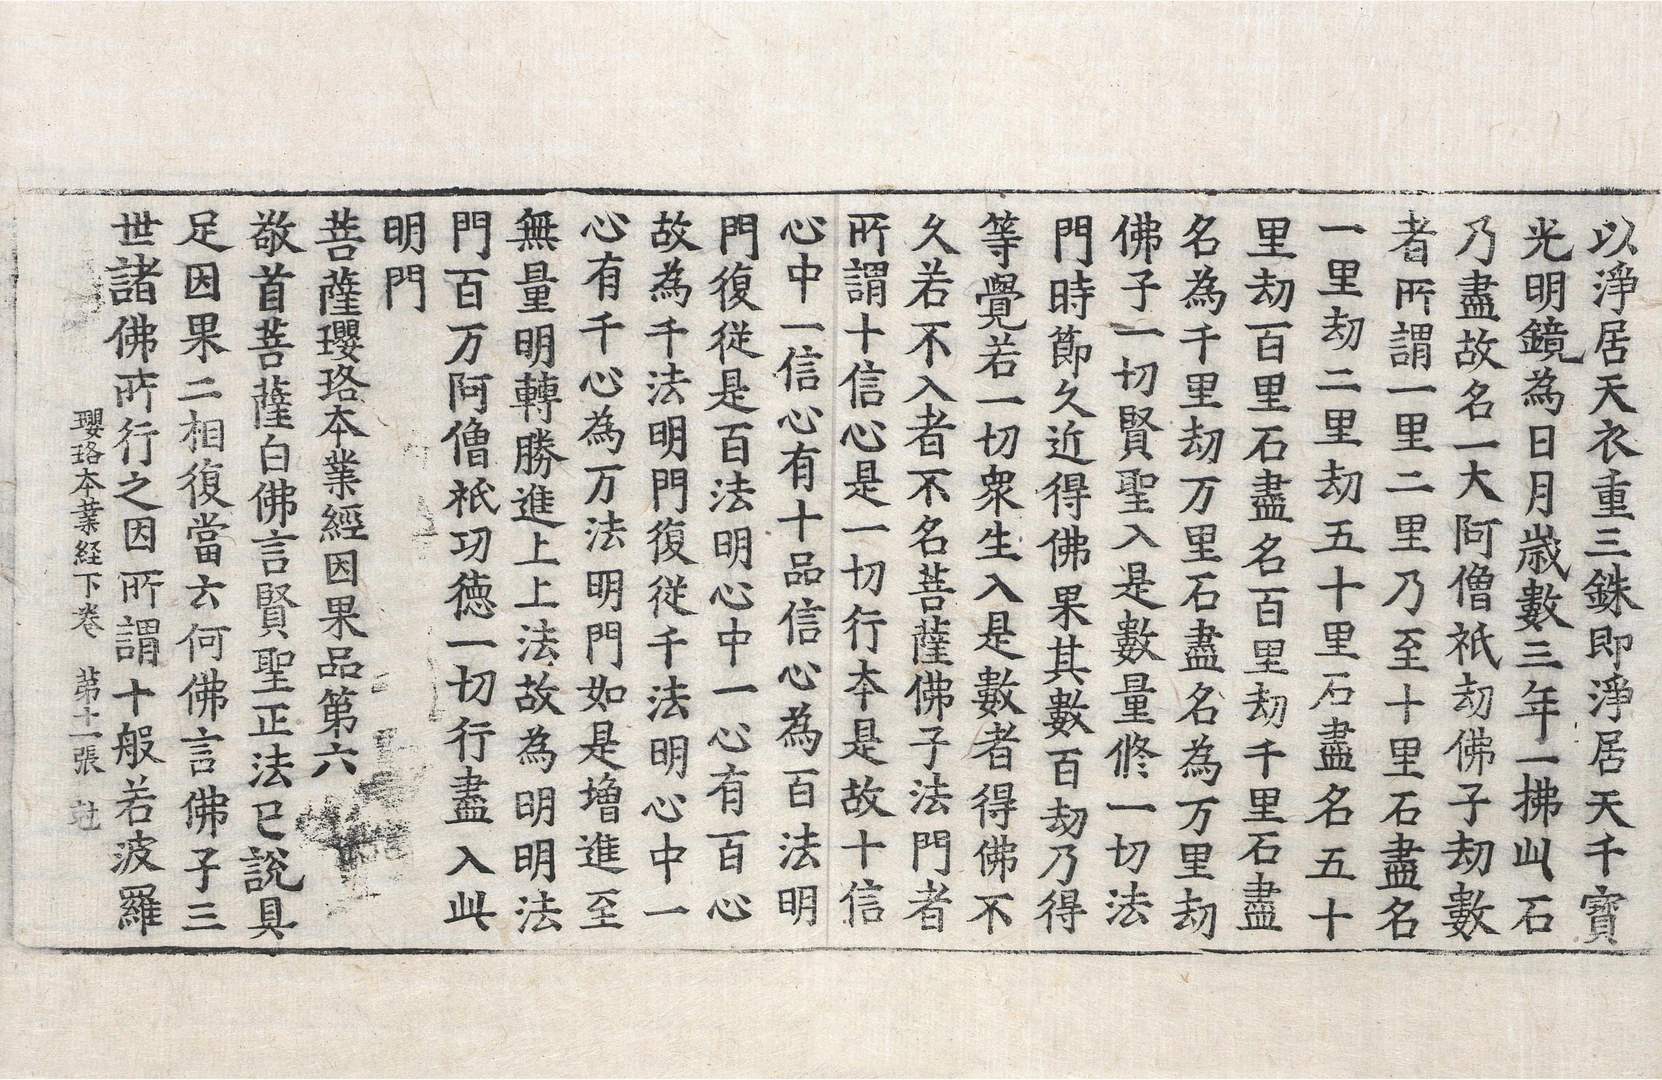 以淨居天衣重三銖即淨居天千寳
光明鏡為日月歲數三年一拂此石
乃盡故名一大阿僧祇劫佛子劫數
者所謂一里二里乃至十里石盡名
一里劫二里劫五十里石盡名五十
里劫百里石盡名百里劫千里石盡
名為千里劫万里石盡名為万里劫
佛子一切賢聖入是數量修一切法
門時節久近得佛果其數百劫乃得
等覺若一切衆生入是數者得佛不
久若不入者不名菩薩佛子法門者
所謂十信心是一切行本是故十信
心中一信心有十品信心為百法明
門復從是百法明心中一心有百心
故為千法明門復從千法明心中一
心有千心為万法明門如是增進至
無量明轉勝進上上法故為明明法
門百万阿僧祇功德一切行盡入此
明門
菩薩瓔珞本業經因果品第六
敬首菩薩白佛言賢聖正法已說具
足因果二相復當云何佛言佛子三
世諸佛所行之因所謂十般若波羅
瓔珞本業経下卷 第十一張